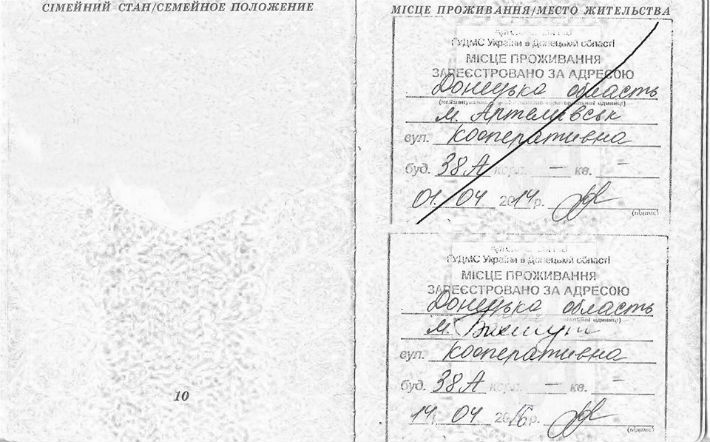 СІМЕЙНИЙ СТАН/СЕМЕЙНОЕ ПОЛОЖЕНИЕ
10
МІСЦЕ ПРОЖИВАННЯ/МЕСТО ЖИТЕЛЬСТВА
ГУДМС України в Донецькій області
МІСЦЕ ПРОЖИВАННЯ
ЗАРЕЄСТРОВАНО ЗА АДРЕСОЮ
Донецька область
м. Артемівськ
вул. Кооперативна
буд. 38А корп. — кв. —
01. 04 2014 р.
(підпис)
ГУДМС України в Донецькій області
МІСЦЕ ПРОЖИВАННЯ
ЗАРЕЄСТРОВАНО ЗА АДРЕСОЮ
Донецька область
м. Бахмут
вул. Кооперативна
буд. 38А корп. — кв. —
14. 04 2016 р.
(підпис)